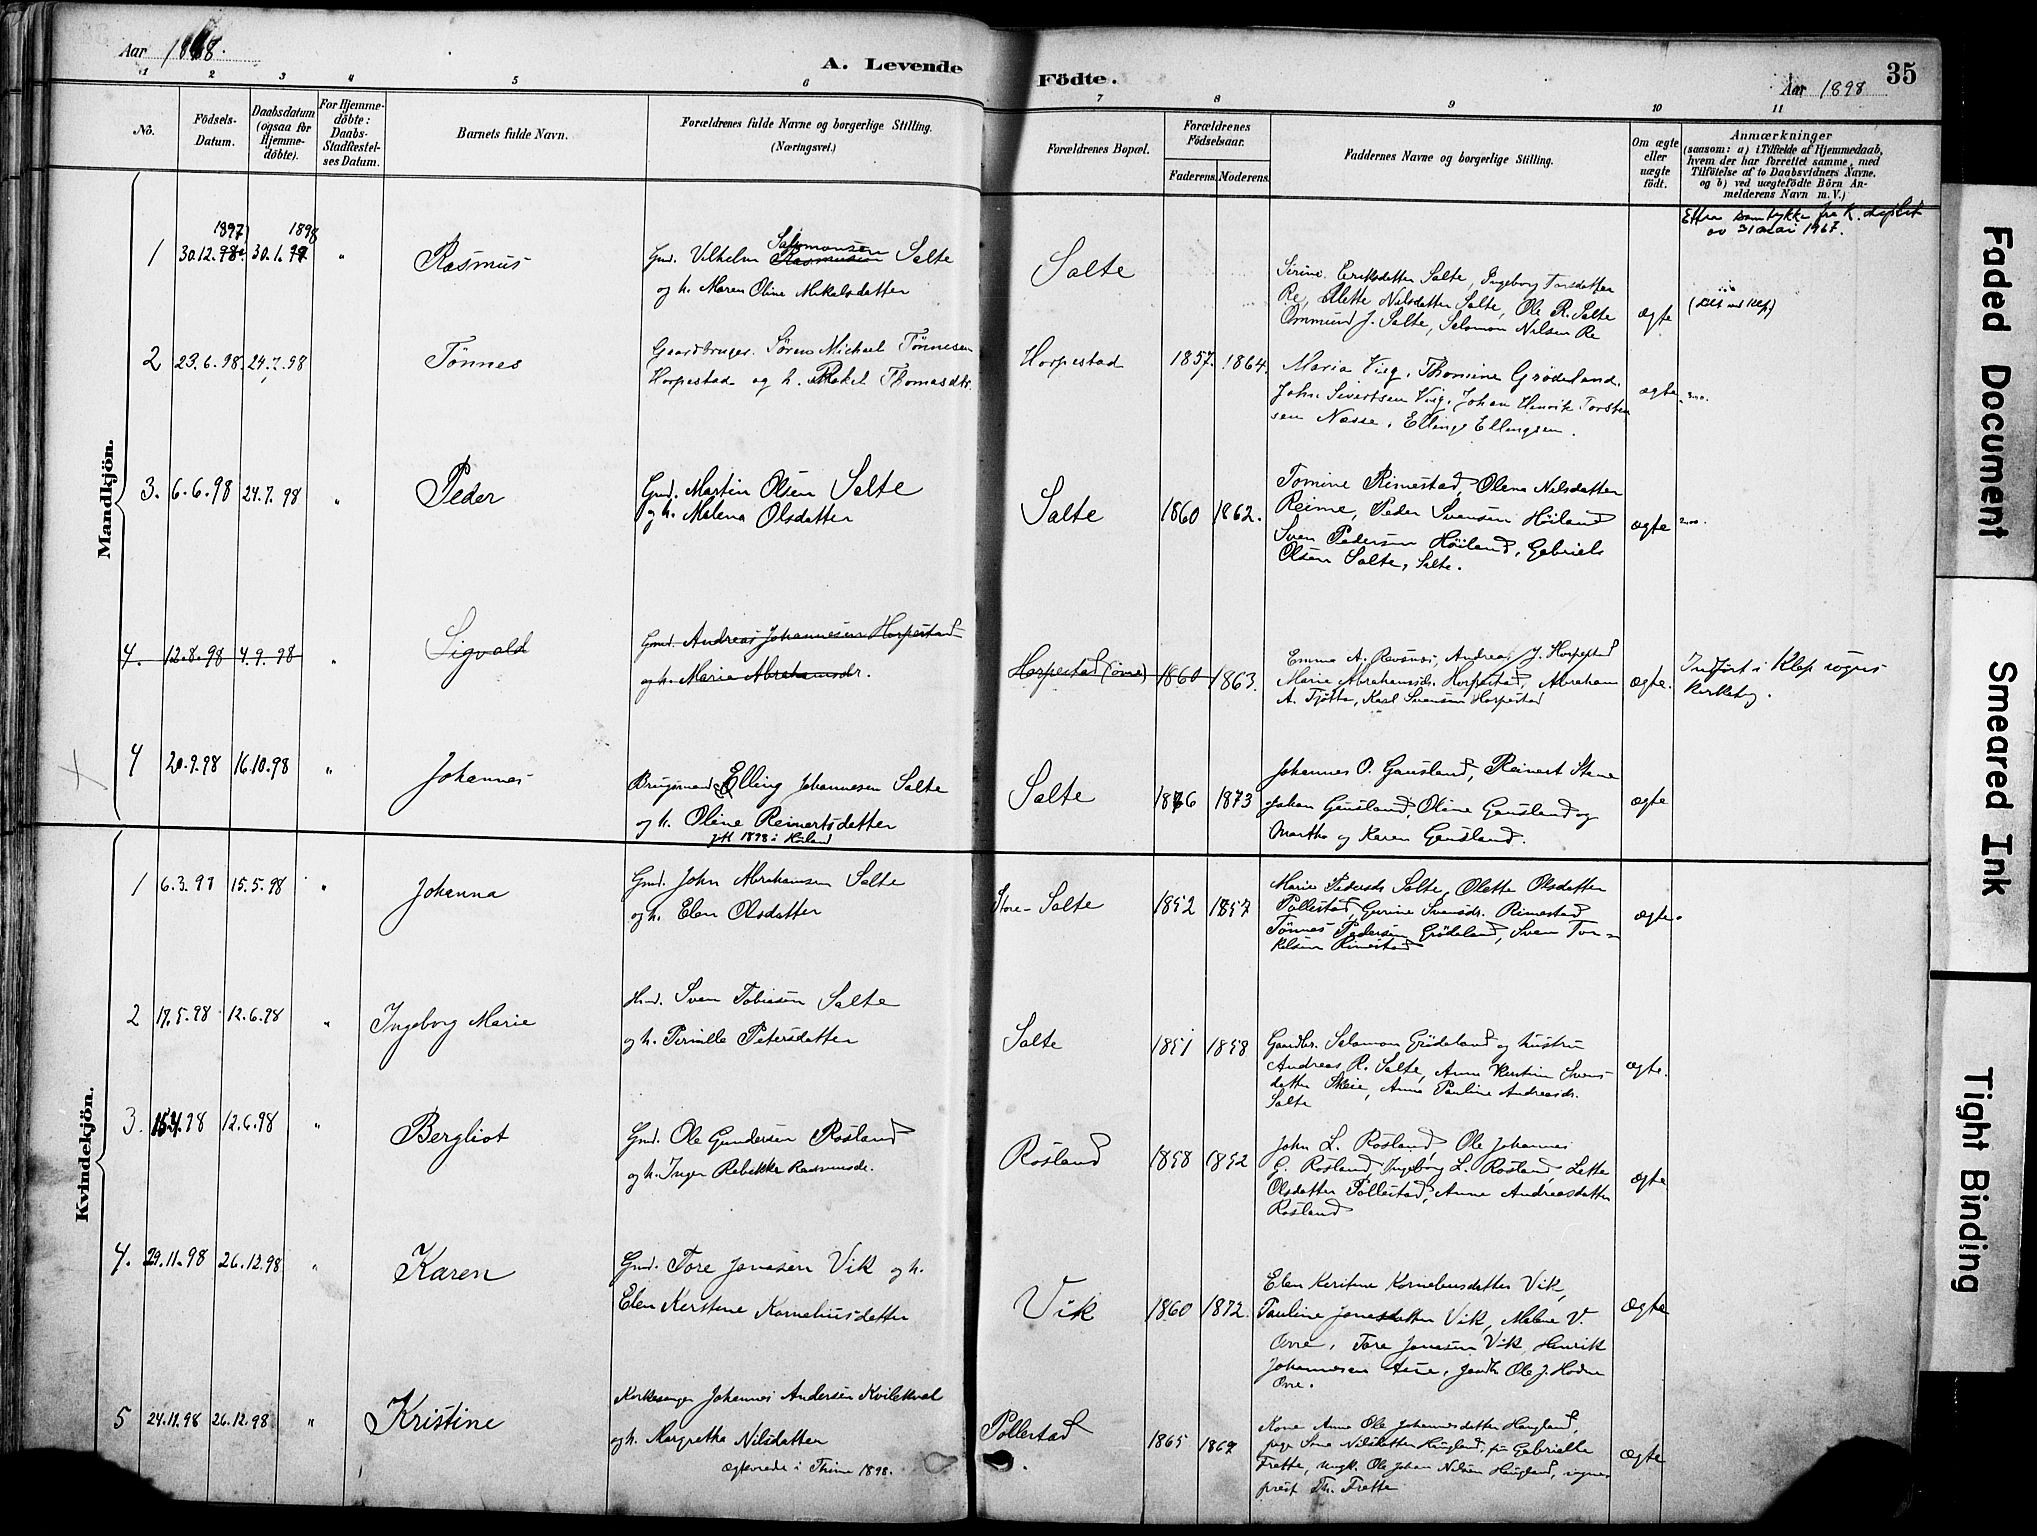 Aar 1898.
A. Levende Födte.
Aar 1898
35
1 2 3 4 5 6 7 8 9 10 11
No.
Födsels-Datum.
Daabsdatum (ogsaa for Hjemme-döbte).
For Hjemme-döbte: Daabs-Stadfæstel-ses Datum.
Barnets fulde Navn.
Forældrenes fulde Navne og borgerlige Stilling.
(Næringsvei.)
Forældrenes Bopæl.
Forældrenes Födselsaar.
Faderens. Moderens.
Faddernes Navne og borgerlige Stilling.
Om ægte eller uægte födt.
Anmærkninger
(saasom: a) i Tilfælde af Hjemmedaab,
hvem der har forrettet samme, med
Tilföielse af to Daabsvidners Navne,
og b) ved uægtefödte Börn An-
melderens Navn m. V.)
Mandkjön.
Etter samtykke fra K. dept
av 31 mai 1967.
1897 1898
1 30.12.98. 30.1.99 " Rasmus
Gmd. Vilhelm Rasmussen Salomonsen Salte
og h. Maren Oline Mikalsdatter
Salte
Sirine Eriksdatter Salte, Ingeborg Torsdatter
Re, Olette Nilsdatter Salte, Ole R. Salte
Ommund J. Salte, Salomon Nilsen Re
ægte
2 23.6.98. 24.7.98 Tönnes
Gaardbruger. Sören Michael Tönnesen
Horpestad og h. Rakel Thomasdtr.
Horpestad 1857. 1864.
Maria Vig, Thomine Grödeland.
John Sivertsen Vig, Johan Henrik Torsten
sen Næsse, Elling Ellingsen.
ægte
3. 6.6.98 24.7.98 " Peder
Gmd. Martin Olsen Salte
og h. Malena Olsdatter
Salte 1860 1862.
Tomine Rimestad, Olena Nilsdatter
Reime, Peder Svensen Höiland
Sven Pedersen Höiland, Gabriels
Olsen Salte, Salte.
ægte
4. 12.8.98 4.9.98 " Sigvald
Gmd. Andreas Johannesen Horpestad
og h. Marie Abrahamsdr.
Horpestad (övre) 1860 1863.
Emma A. Revsnes, Andreas J. Horpestad
Marie Abrahamsdr. Horpestad, Abraham
A. Tjötta, Karl Svensen Horpestad
ægte.
Indført i Klep sogns
kirkebog.
4 20.9.98 16.10.98 " Johannes
Brugsmand Elling Johannesen Salte
og h. Oline Reinertsdatter
gft 1898 i Höiland
Salte 1876 1873
Johannes O. Gausland, Reinert Stene
Johan Gausland, Oline Gausland og
Martha og Karen Gausland.
ægte
Kvindekjön.
1 6.3.98 15.5.98 " Johanna
Gmd. John Abrahamsen Salte
og h. Elen Olsdatter
Store-Salte 1852 1857
Marie Pedersdr. Salte, Olette Olsdatter
Pollestad, Gurine Svensdr. Rimestad
Tönnes Pedersen Grödeland, Sven Tor-
kelsen Rimestad
ægte.
2 17.5.98 12.6.98 " Ingeborg Marie
Hmd. Sven Tobiasen Salte
og h. Pernille Petersdatter
Salte 1851 1858
Gaardbr. Salamon Grödeland og hustru
Andreas R. Salte, Anne Kerstine Svens-
datter Skeie, Anna Pauline Andreasdr.
Salte
ægte.
3. 12.6.98 " Bergliot
Gmd. Ole Gundersen Rosland
og h. Inger Rebekka Rasmusdr.
Rosland 1858 1852
John L. Rosland, Ole Johannes
G. Rosland, Ingeborg L. Rosland, Lette
Olsdatter Pollestad, Anne Andreasdatter
Rosland
ægte
4. 29.11.98 26.12.98 " Karen
Gmd. Tore Jonasen Vik og h.
Elen Kerstine Korneliusdatter
Vik 1860 1872.
Elen Kerstine Korneliusdatter Vik,
Pauline Jonasdatter Vik, Malene V.
Orre, Tore Jonasen Vik, Henrik
Johannesen Aase, Ole J. Hodne
Orre.
ægte
5 24.11.98 26.12.98 " Kristine
Kirkesanger Johannes Andersen Kvilekval
og h. Margretha Nilsdatter
ægteviede i Thime 1898.
Pollestad 1865 1867
Kone Anne Ole Johannesdatter Haugland,
pige Nilsdatter Haugland, fr. Gabrielle
Frette, ungk. Ole Johan Nilsen Haugland, sogne-
prest Th. Frette
ægte
Faded Document
Smeared Ink
Tight Binding